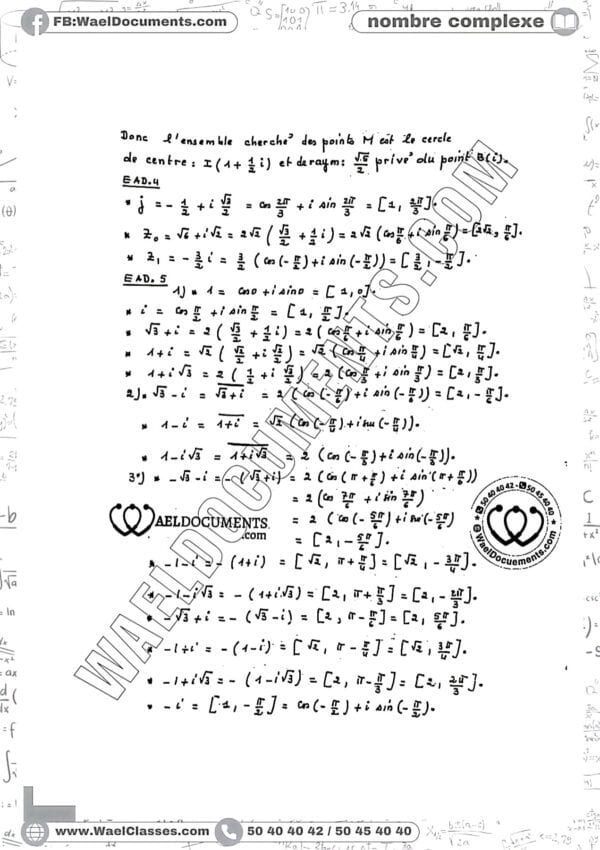 FB:WaelDocuments.com
nombre complexe
Donc l'ensemble cherché des points M est le cercle
de centre : I(1+½i) et de rayon: √5/2 privé du point B(i).
EAD.4
* j = -1/2 + i √3/2 = cos 2π/3 + i sin 2π/3 = [1, 2π/3].
* Z₀ = √6 + i√2 = 2√2 (√3/2 + 1/2 i) = 2√2 (cos π/6 + i sin π/6) = [2√2, π/6].
* Z₁ = -3/2 i = 3/2 (cos(-π/2) + i sin(-π/2)) = [3/2, -π/2].
EAD.5
1) * 1 = cos0 + i sin0 = [1, 0].
* i = cos π/2 + i sin π/2 = [1, π/2].
* √3 + i = 2 (√3/2 + 1/2 i) = 2 (cos π/6 + i sin π/6) = [2, π/6].
* 1+i = √2 (√2/2 + i √2/2) = √2 (cos π/4 + i sin π/4) = [√2, π/4].
* 1+i√3 = 2 (1/2 + i √3/2) = 2 (cos π/3 + i sin π/3) = [2, π/3].
2) * √3 - i = \overline{√3+i} = 2 (cos(-π/6) + i sin(-π/6)) = [2, -π/6].
* 1-i = \overline{1+i} = √2 (cos(-π/4) + i sin(-π/4)).
* 1-i√3 = \overline{1+i√3} = 2 (cos(-π/3) + i sin(-π/3)).
3°) * -√3 - i = -(√3+i) = 2 (cos(π+π/6) + i sin(π+π/6))
= 2 (cos 7π/6 + i sin 7π/6)
= 2 (cos(-5π/6) + i sin(-5π/6)
= [2, -5π/6].
* -1-i = -(1+i) = [√2, π+π/4] = [√2, -3π/4].
* -1-i√3 = -(1+i√3) = [2, π+π/3] = [2, -2π/3].
* -√3+i = -(√3-i) = [2, π-π/6] = [2, 5π/6].
* -1+i = -(1-i) = [√2, π-π/4] = [√2, 3π/4].
* -1+i√3 = -(1-i√3) = [2, π-π/3] = [2, 2π/3].
* -i = [1, -π/2] = cos(-π/2) + i sin(-π/2).
WAELDOCUMENTS.COM
WAELDOCUMENTS
.com
50 40 40 42 - 50 45 40 40
WaelDocuements.com
www.WaelClasses.com
50 40 40 42 / 50 45 40 40